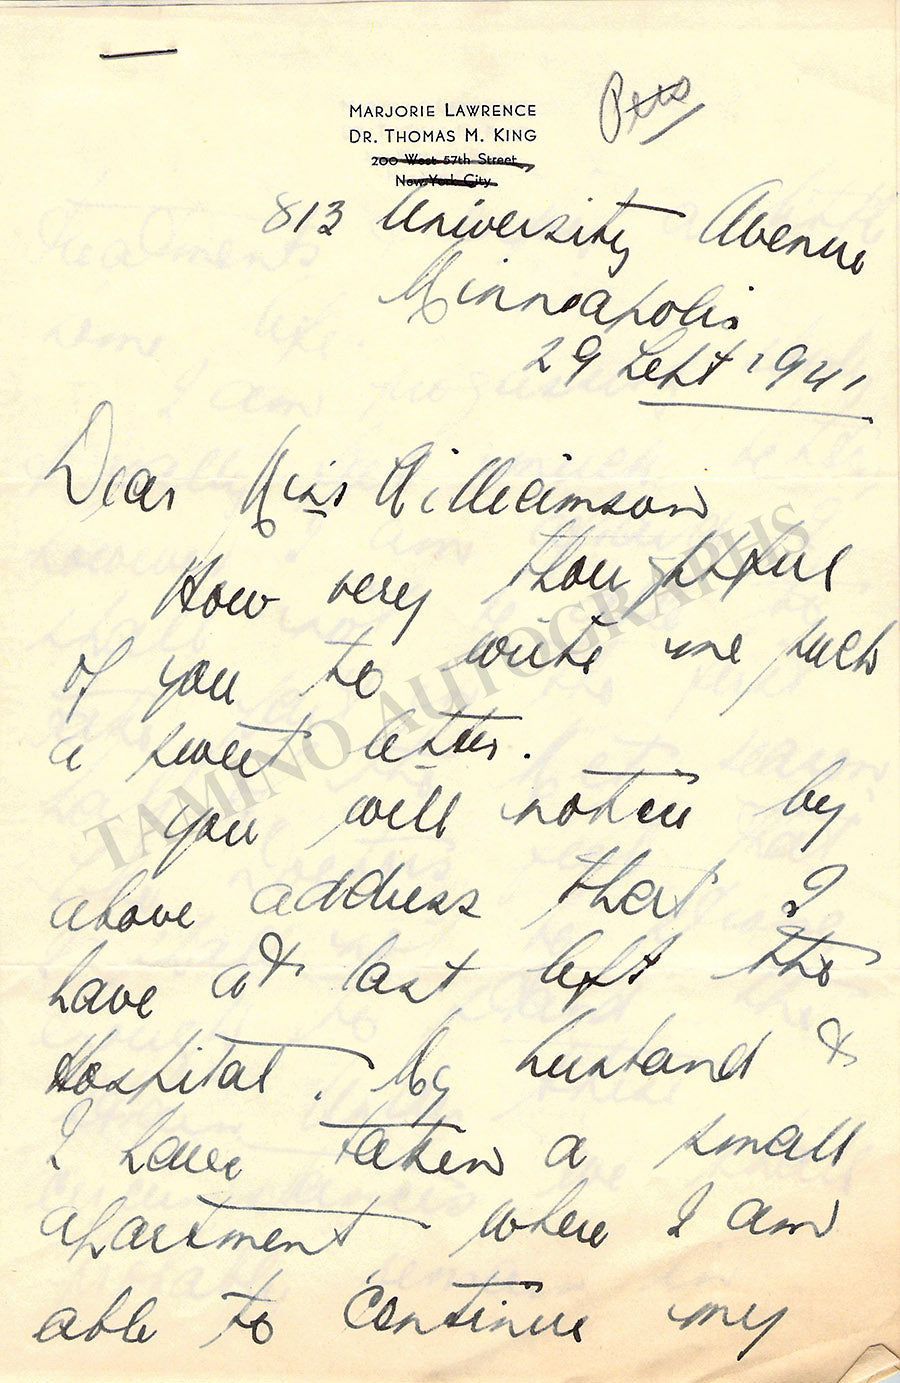 MARJORIE LAWRENCE
DR. THOMAS M. KING
200 West 57th Street
New York City
813 University Avenue
Minneapolis
29 Sept 1941
Dear Miss Williamson
How very thoughtful
of you to write me such
a sweet letter.
You will notice by
above address that I
have at last left the
Hospital. My husband &
I have taken a small
apartment where I am
able to continue my
TAMINO AUTOGRAPHS